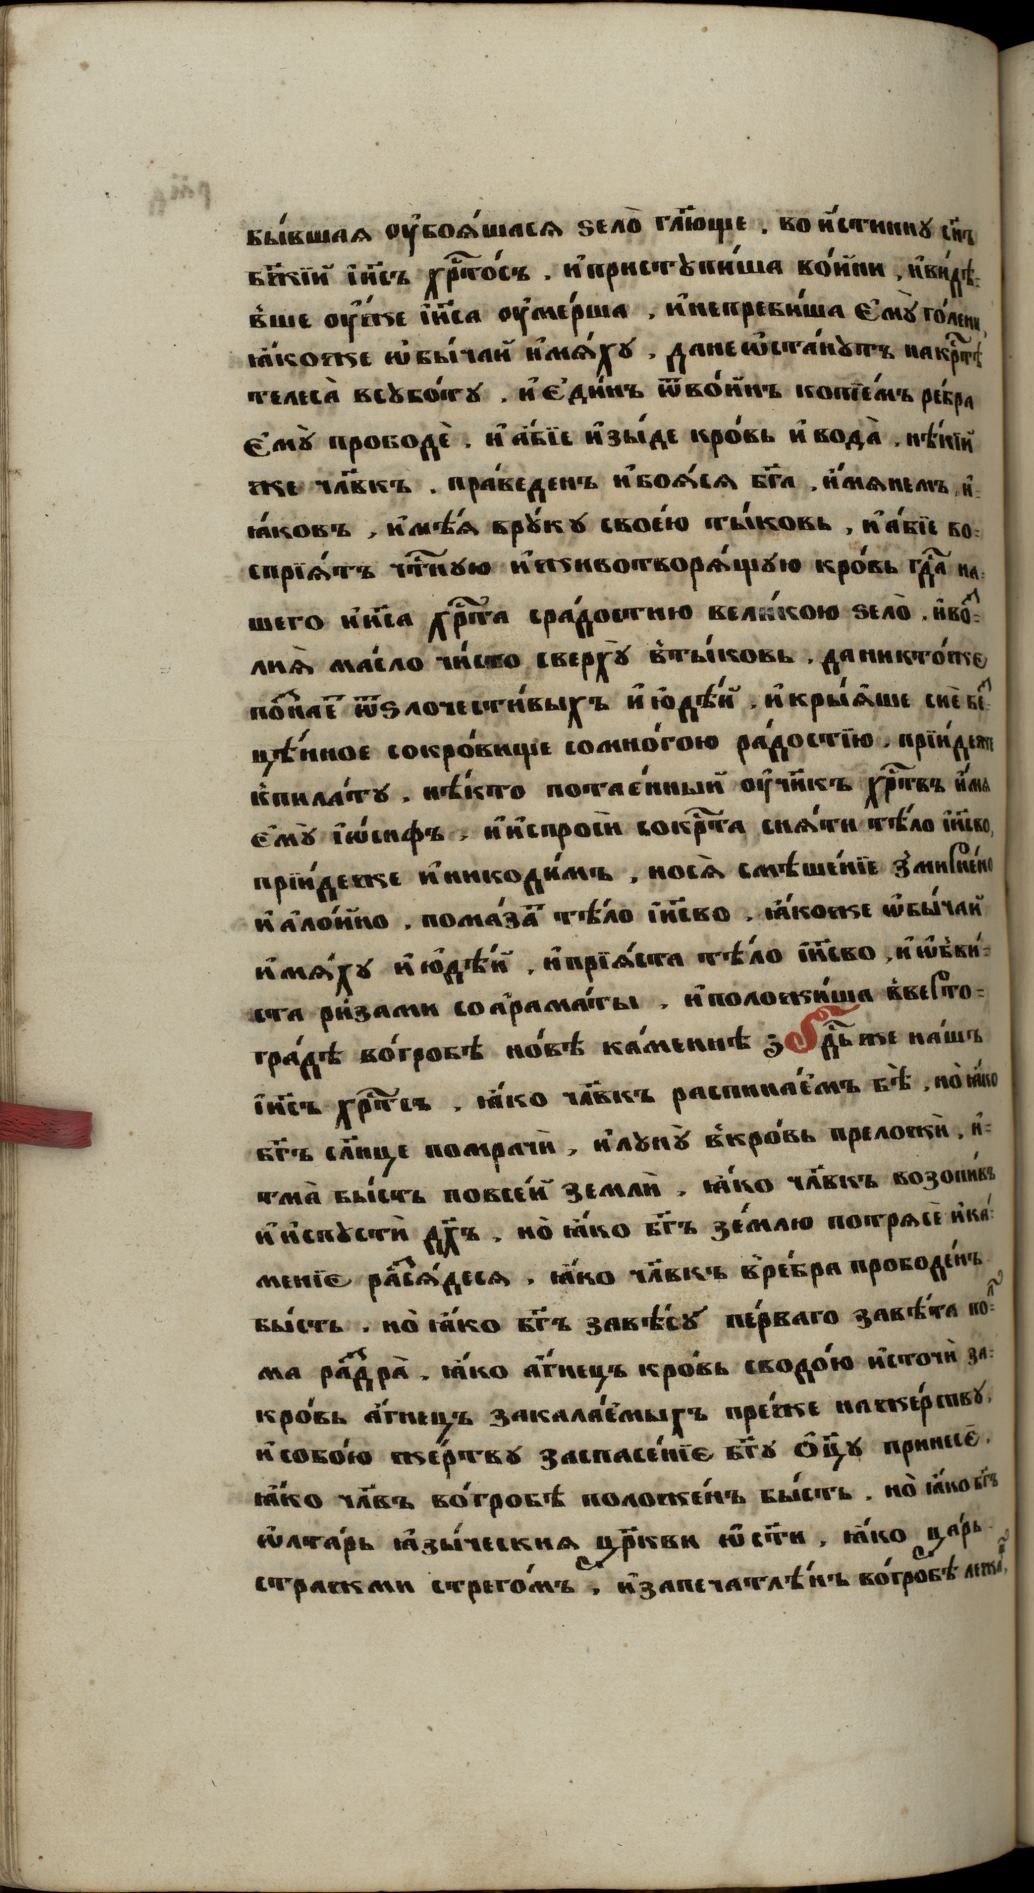 бы́вшая ᲂу҆боѧ́шасѧ ѕело̀ гл҃юще . во и҆́стинну сн҃ъ
бж҃їй і҆и҃съ хр҃то́съ . и҆ пристꙋпи́ша во́йни , и҆ви́дѣ=
в̾ше ᲂу҆́же і҆и҃са ᲂу҆ме́рша , и҆непреби́ша є҆мꙋ̀ го́лени
ꙗ҆́коже ѡ҆бы́чай и҆мѧ́хꙋ , данеѡ҆ста́нꙋтъ накр҃тѣ
телеса̀ всꙋбо́тꙋ . и҆ є҆ди́нъ ѿво́йнъ копїе́мъ ре́бра
є҆мꙋ̀ прободѐ . и҆ а҆́бїе и҆зы́де кро́вь и҆ вода̀ . нѣ́кїй
же чл҃вкъ . пра́веденъ и҆боѧ́сѧ бг҃а . и҆́мѧнемъ и҆=
ꙗ҆́ковъ , и҆мѣ́ѧ врꙋ́кꙋ свое́ю ты́ковь , и҆ а҆́бїе во=
спрїѧ́тъ чт҃нꙋю и҆ животворѧ́щꙋю кро́вь гд҃а на=
шего и҆и҃са хр҃та срадостию вели́кою ѕело̀ . и҆во=
лиѧ̀ ма́сло чи́сто сверхꙋ̀ в̾ты́ковь . даникто́же
по́знаетъ ѿѕлочести́выхъ и҆ю҆дѣ́й , и҆ крыѧ́ше сиѐ без
цѣ́нное сокро́вище сомно́гою ра́достїю . прїи́деже
к̾пила́тꙋ . нѣ́кто потае́нный ᲂу҆чн҃къ хр҃твъ и҆́мѧ
є҆мꙋ̀ і҆ѡ́сифъ , и҆ и҆спросѝ сокр҃та снѧ́ти тѣ́ло і҆и҃сво ,
прїи́деже и҆никоди́мъ , носѧ̀ смѣше́нїе зми́рнено
и҆ а҆ло́йно . пома́за тѣ́ло і҆и҃сво . ꙗ҆́коже ѡ҆бы́чай
и҆мѧ́хꙋ и҆ю҆дѣ́й , и҆прїѧ́ста тѣ́ло і҆и҃сво , и҆ ѡ҆бви́=
ста ри́зами соа҆рама́ты . и҆ положи́ша в̾вертo=
гра́дѣ во́гробѣ но́вѣ ка́меннѣ з Гд҃ьже на́шъ
і҆и҃съ хр҃тсъ , ꙗ҆́ко чл҃вкъ распина́емъ бѣ̀ . но̀ ꙗ҆́ко
бг҃ъ сл҃нце помрачѝ , и҆ лꙋнꙋ̀ в̾кро́вь преложѝ , и҆=
тма̀ бы́сть повсе́й землѝ . ꙗ҆́ко чл҃вкъ возопи́въ
и҆ и҆спꙋстѝ дх҃ъ . но̀ ꙗ҆́ко бг҃ъ зе́млю потрѧсѐ и҆ка́=
менїе расѧ́десѧ . ꙗ҆́ко чл҃вкъ в̾ре́бра прободе́нъ
бы́сть . но̀ ꙗ҆́ко бг҃ъ завѣ́сꙋ пе́рваго завѣ́та по=
ма раздра̀ . ꙗ҆́ко а҆́гнецъ кро́вь сводо́ю и҆сточѝ за=
кро́вь а҆́гнецъ закала́емыхъ пре́же нaже́ртвꙋ .
и҆ собо́ю же́ртвꙋ заспасе́нїе бг҃ꙋ ѻ҆ц҃ꙋ принесѐ .
ꙗ҆́ко чл҃въ во́гробѣ положе́нъ бы́сть . но̀ ꙗ҆́ко бг҃ъ
ѡ҆лта́рь ꙗ҆зы́ческиѧ цр҃кви ѡ҆ст҃и , ꙗ҆́ко ца́рь
стражми стрего́мъ , и҆запечатлѣ́нъ во́гробѣ лежа̀ ,